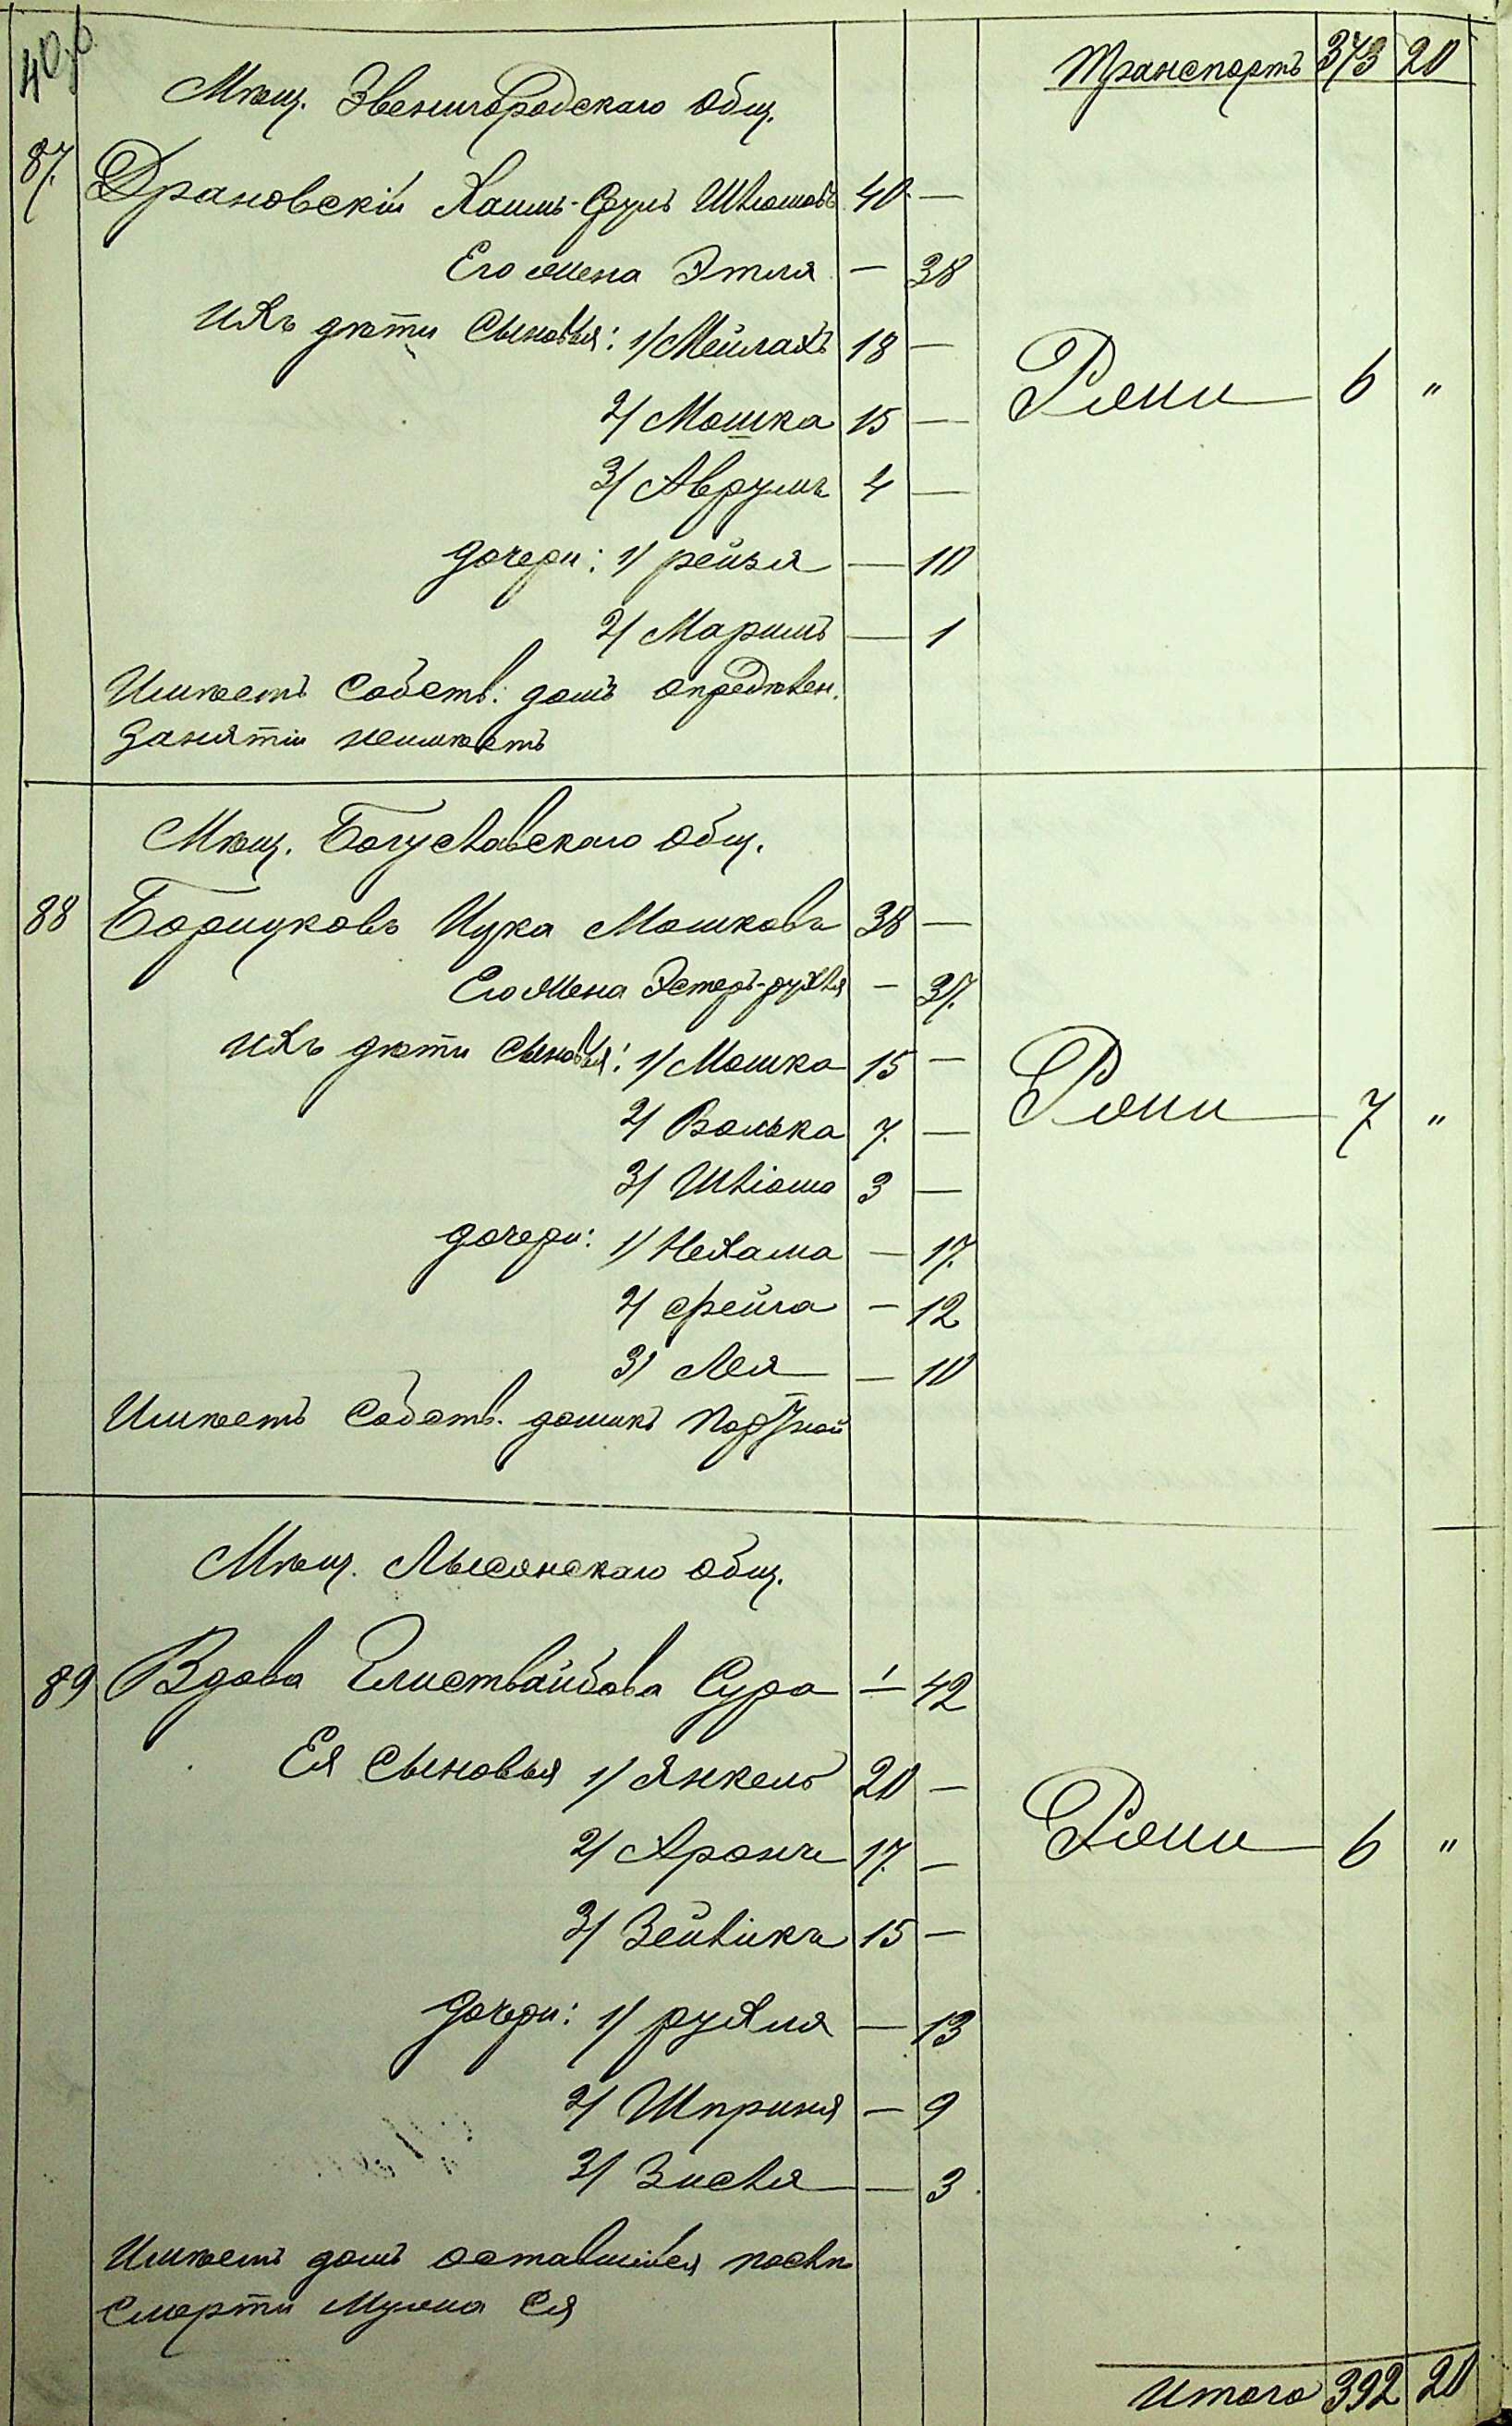 40 об.
Транспортъ 373 20
Мѣщ. Звенигородскаго Общ.
87. Драновскій Хаимъ-Сруль Шліомовъ 40 —
Его жена Этля — 38
Ихъ дѣти Сыновья: 1/ Мейлахъ 18 —
2/ Мошка 15 —
Ряши 6 "
3/ Аврумъ 4 —
дочери: 1/ рейзя — 10
2/ Маримъ — 1
Имѣетъ Собств. домъ опредѣлен.
занятій неимѣетъ
Мѣщ. Богуславскаго Общ.
88 Борщуковъ Ицка Мошковъ 38 —
Его жена Эстеръ-рухля — 37.
Ихъ дѣти Сыновья: 1/ Мошка 15 —
2/ Волька 7. — 7 "
3/ Шліома 3 —
дочери: 1/ Нехама — 17.
2/ фейга — 12
3/ Лея — 10
Имѣетъ Собств. домикъ Портной
Мѣщ. Лысянскаго Общ.
89 Вдова Глиствайбова Сура — 42
Ея Сыновья 1/ Янкель 20 —
2/ Аронъ 17. — 6 "
3/ Зейликъ 15 —
дочери: 1/ рухля — 13
2/ Шприня — 9
3/ Зисля — 3
Имѣетъ домъ оставшійся послѣ
Смерти Мужа Ея
Итого 392 20